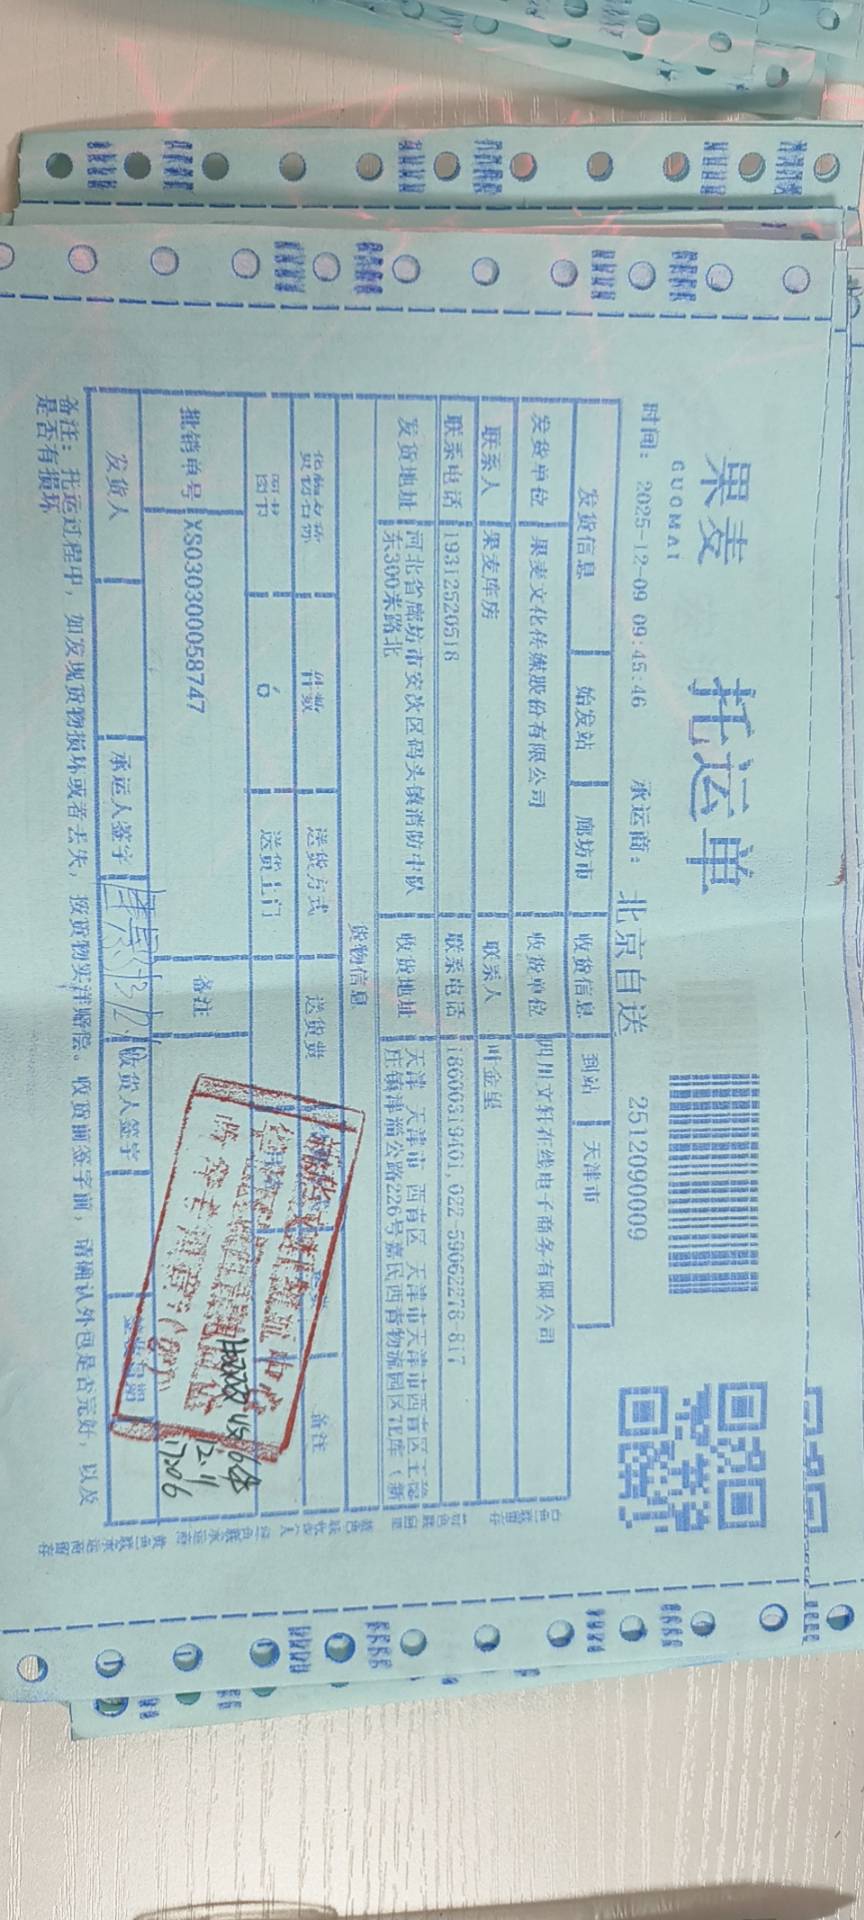 果麦
GUOMAI
托运单
时间: 2025-12-09 09:45:46 承运商: 北京自送 2512090009
发货信息 始发站 廊坊市 收货信息 到站 天津市
发货单位 果麦文化传媒股份有限公司 收货单位 四川文轩在线电子商务有限公司
联系人 果麦库房 联系人 叶金星
联系电话 19312520518 联系电话
发货地址 河北省廊坊市安次区码头镇消防中队东300米路北 收货地址 天津 天津市 西青区 天津市天津市西青区王稳庄镇津淄公路226号嘉民西青物流园区7E库(新
货物信息
货物名称 件数 送货方式 送货费 备注
图书 6 送货上门
批销单号 XS030300058747 备注
发货人 承运人签字 收货人签字
备注: 托运过程中, 如发现货物损坏或者丢失, 按货物实洋赔偿。收货前签字前, 请确认外包是否完好, 以及
是否有损坏
12.11